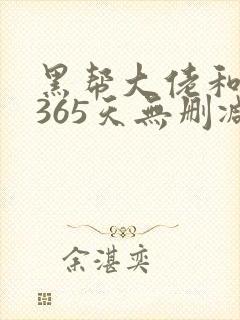 黑帮大佬和
365天無删减
余湛奕